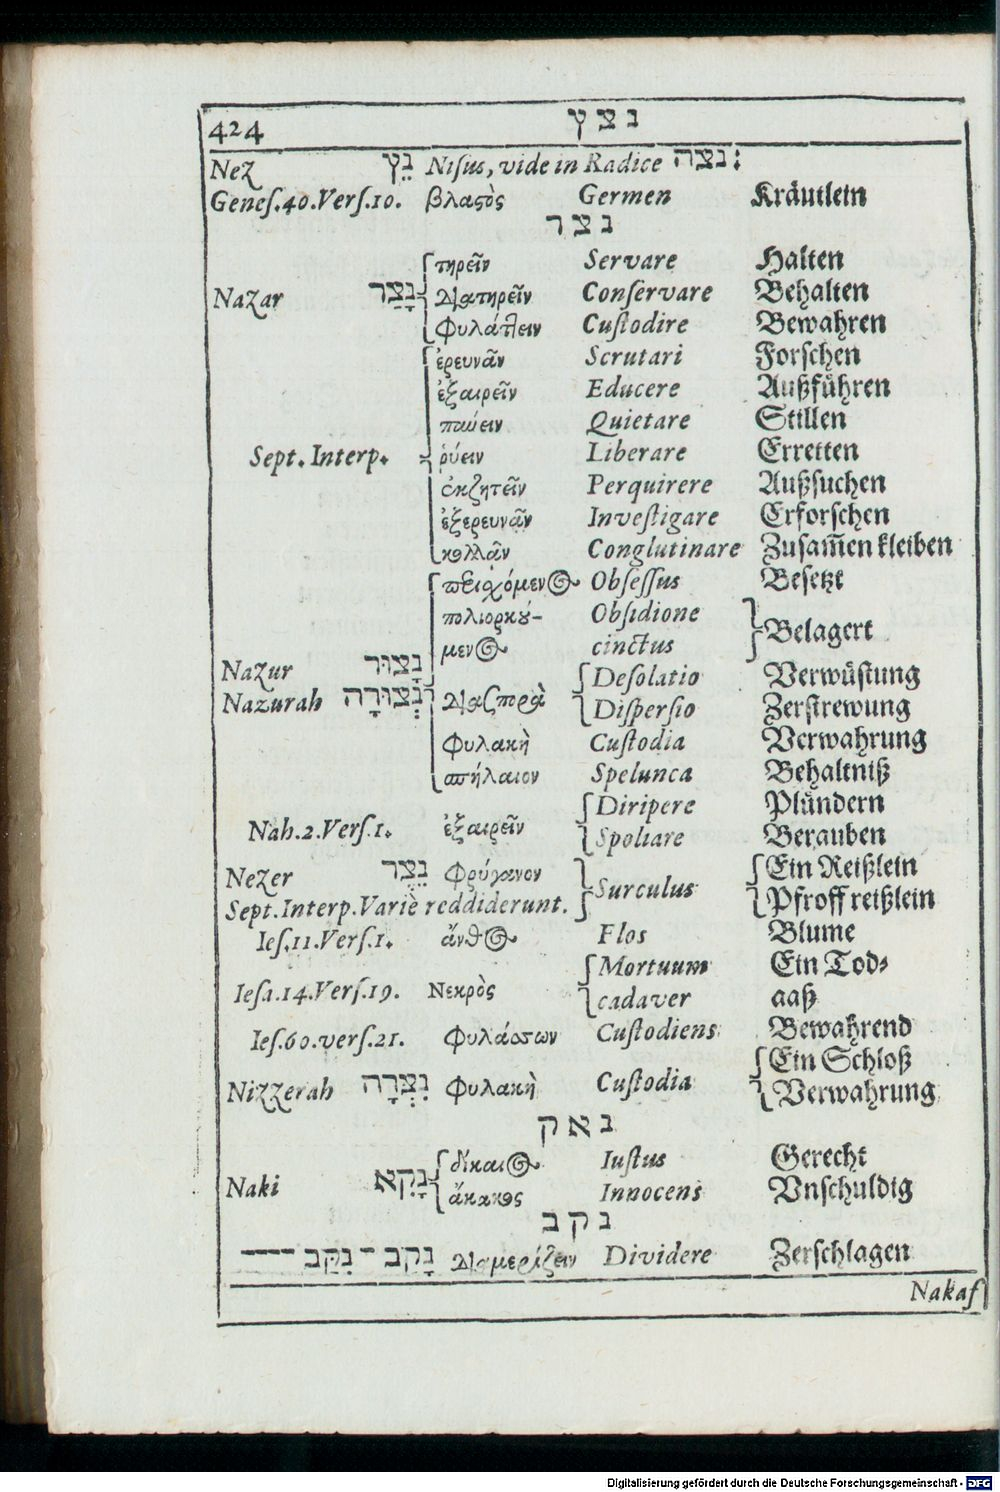 424 נ צ ץ
Nez נֵץ Nisus, vide in Radice נצה:
Genes.40.Vers.10. βλαστὸς Germen Kräutlein
נ צ ר
τηρεῖν Servare Halten
Nazar נָצַר διατηρεῖν Conservare Behalten
φυλάττειν Custodire Bewahren
ἐρευνᾶν Scrutari Forschen
ἐξαιρεῖν Educere Außführen
παύειν Quietare Stillen
Sept. Interp. ῥύειν Liberare Erretten
ἐκζητεῖν Perquirere Außsuchen
ἐξερευνᾶν Investigare Erforschen
κολλᾶν Conglutinare Zusam̃en kleiben
περιεχόμενος Obsessus Besetzt
πολιορκού- Obsidione
μενος cinctus Belagert
Nazur נָצוּר Desolatio Verwüstung
Nazurah נְצוּרָה διασπορὰ Dispersio Zerstrewung
φυλακὴ Custodia Verwahrung
σπήλαιον Spelunca Behaltniß
Diripere Plündern
Nah.2.Vers.1. ἐξαιρεῖν Spoliare Berauben
Nezer נֵצֶר φρύγανον Surculus Ein Reißlein
Sept.Interp.Variè reddiderunt. Pfroff reißlein
Ies.11.Vers.1. ἄνθος Flos Blume
Mortuum Ein Tod-
Iesa.14.Vers.19. Νεκρὸς cadaver aaß
Ies.60.vers.21. φυλάσσων Custodiens Bewahrend
Ein Schloß
Nizzerah נִצְּרָה φυλακὴ Custodia Verwahrung
נ א ק
δίκαιος Iustus Gerecht
Naki נָקִא ἄκακος Innocens Vnschuldig
נ ק ב
נָקַב - נִקַּב ---- διαμερίζειν Dividere Zerschlagen
Nakaf
Digitalisierung gefördert durch die Deutsche Forschungsgemeinschaft - DFG